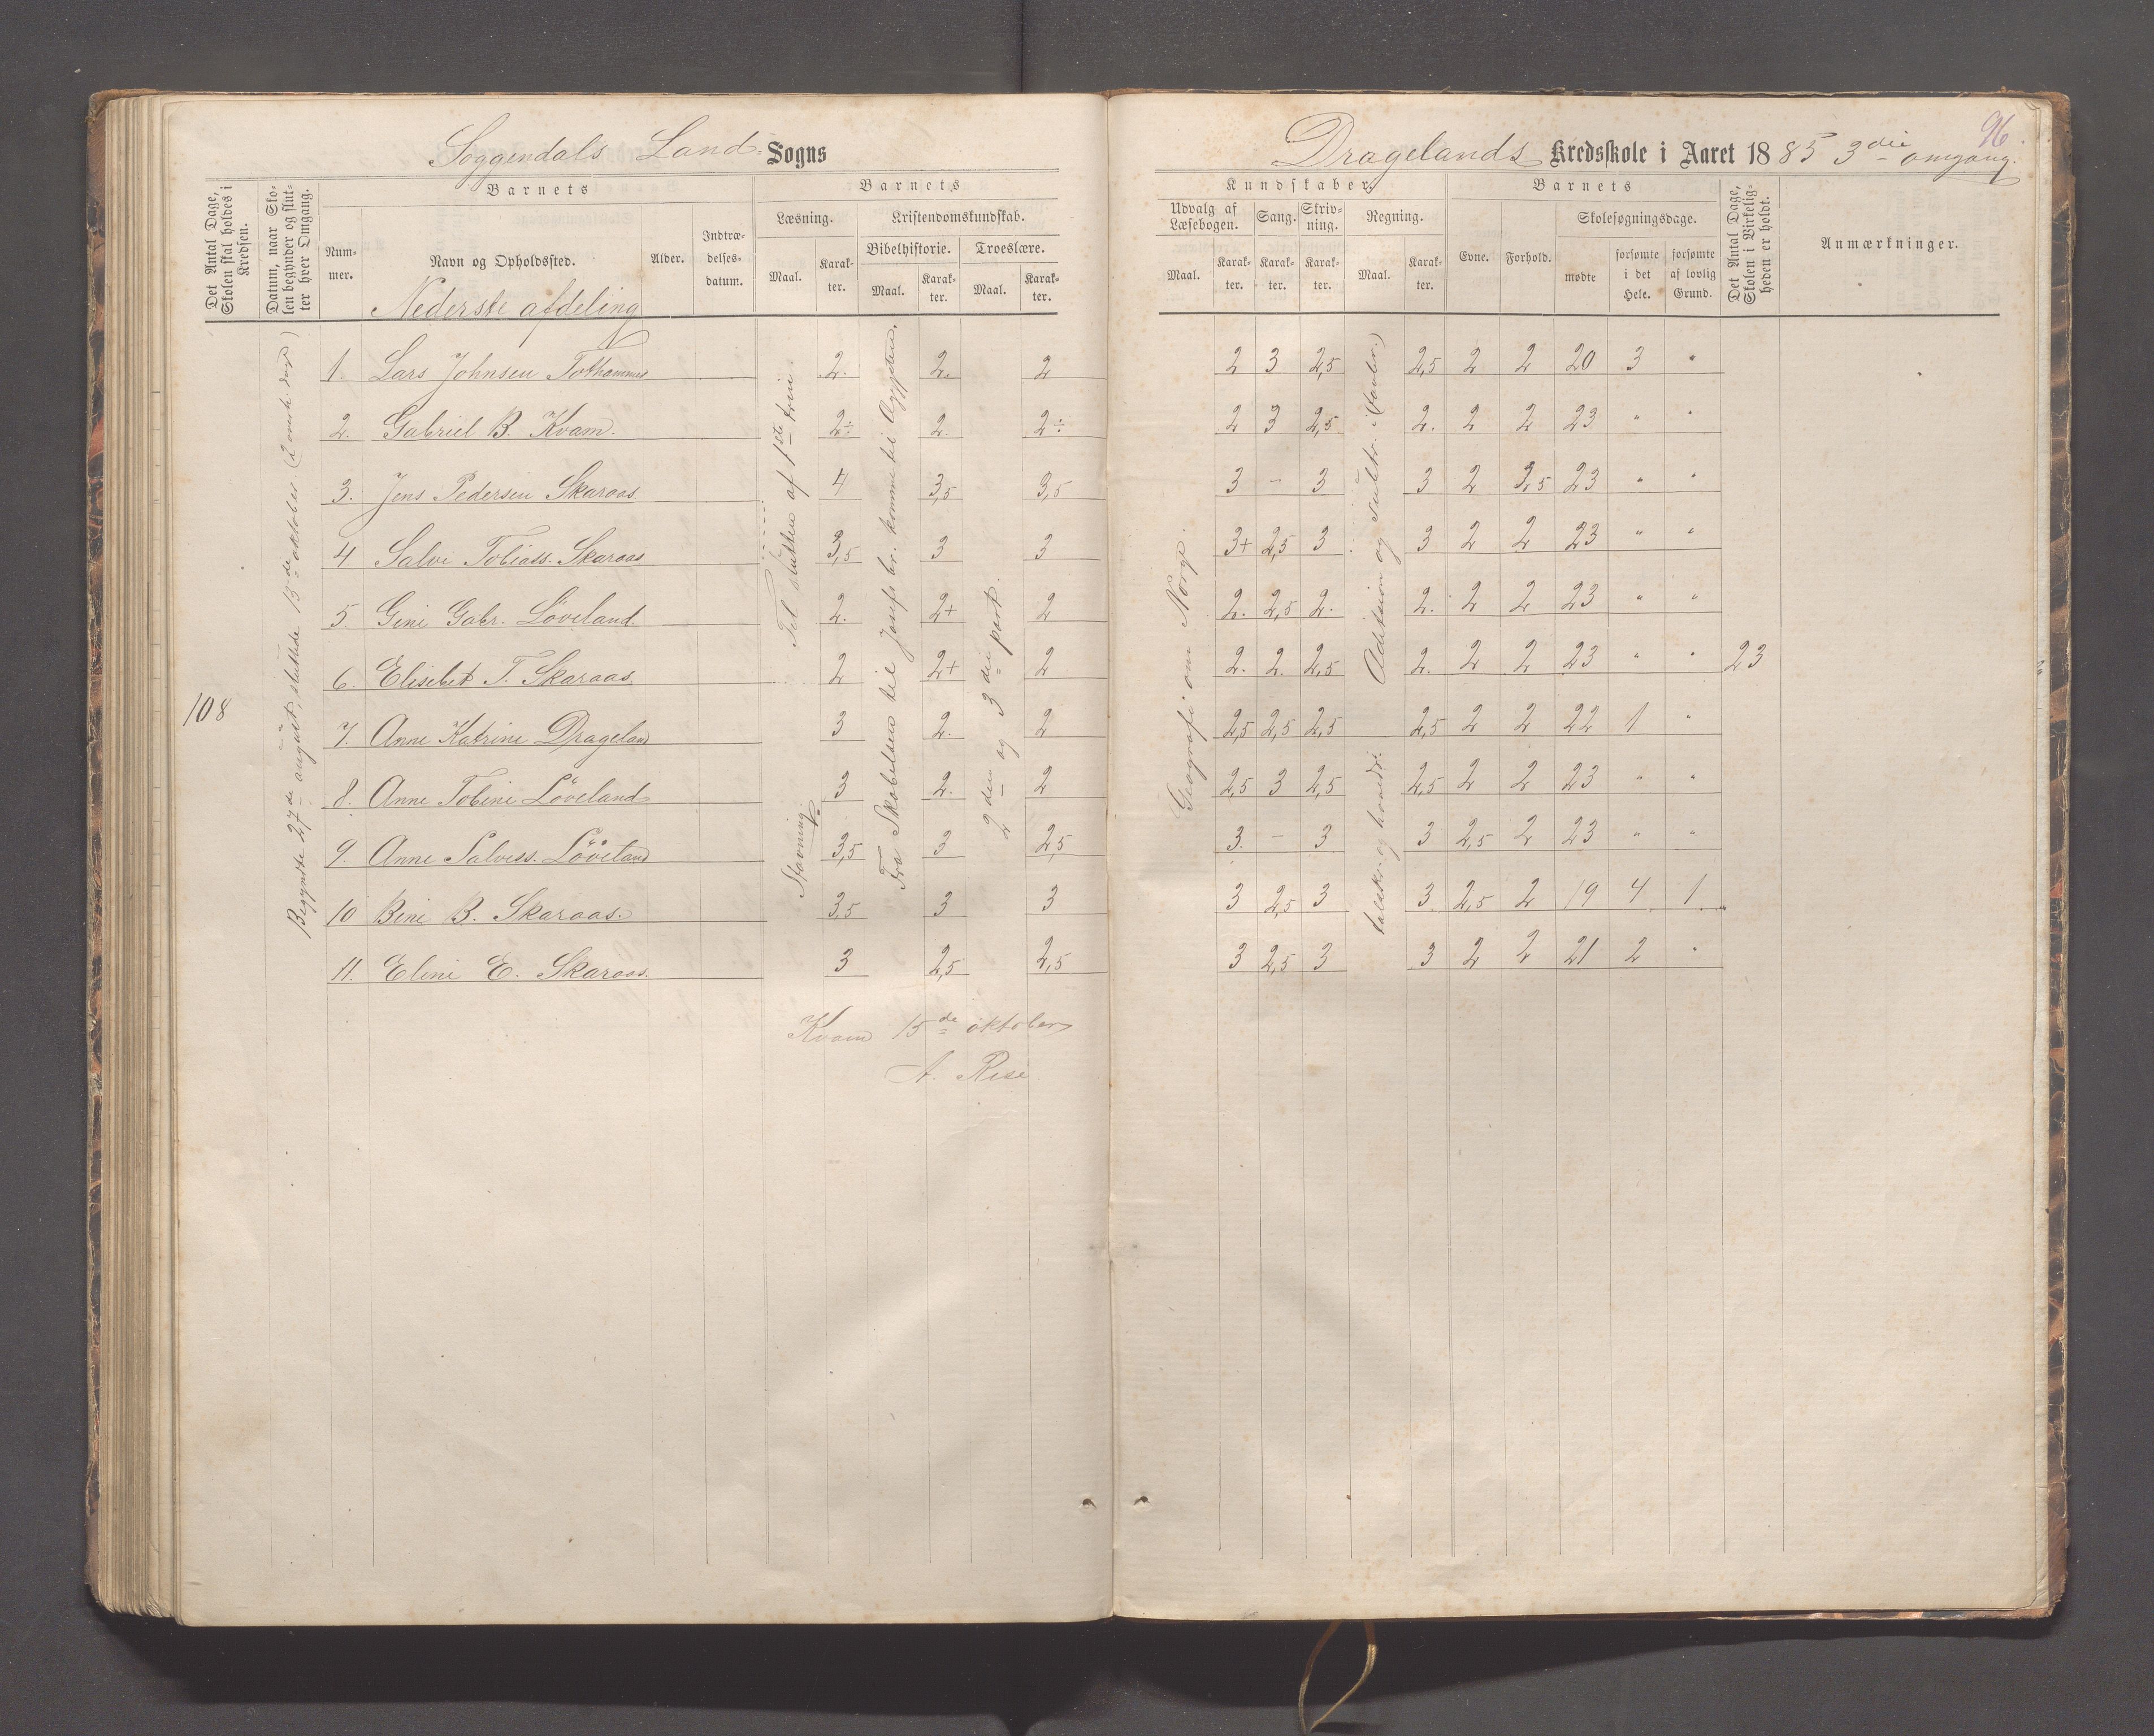 Soggendals Land- Sogns
Det Antal Dage, Skolen skal holdes i Kredsen.
Datum, naar Skolen begynder og slutter hver Omgang.
Barnets
Nummer.
Navn og Opholdssted.
Alder.
Indtrædelsesdatum.
Nederste afdeling
Barnets
Læsning.
Kristendomskundskab.
Maal.
Karakter.
Bibelhistorie.
Troeslære.
Maal.
Karakter.
Maal.
Karakter.
108
Begyndte 27de august, sluttede 15de oktober.
1. Lars Johnsen 2. 2. 2
2. Gabriel B. Kvam. 2÷ 2. 2÷
3. Jens Pedersen Skaraas 4 3,5 3,5
4 Salve Tobiass. Skaraas 3,5 3 3
5. Gini Gabr. Löveland 2. 2+ 2
6. Elisebet T. Skaraas 2 2+ 2
7. Anne Katrine Drageland 3 2. 2
8. Anne Tobine Löveland 3 2. 2
9. Anne Salvess. Löveland 3,5 3 2,5
10 Bine B. Skaraas. 3,5 3 3
11. Eline E. Skaraas. 3 2,5 2,5
Til slutten af 1ste trin.
Stavning
Fra Skabelsen til Josefs br. komme til Ægypten.
2den og 3die part.
Kvam 15de oktober
A. Rise
96.
Dragelands Kredsskole i Aaret 1885 3die omgang.
Kundskaber.
Udvalg af Læsebogen.
Sang.
Skrivning.
Regning.
Maal.
Karakter.
Karakter.
Karakter.
Maal.
Karakter.
Barnets
Evne.
Forhold.
Skolesøgningsdage.
mødte
forsømte i det Hele.
forsømte af lovlig Grund.
Det Antal Dage, Skolen i Virkeligheden er holdt.
Anmærkninger.
2 3 2,5 2,5 2 2 20 3 "
2 3 2,5 2. 2 2 23 " "
3 – 3 3 2 2,5 23 " "
3+ 2,5 3 3 2 2 23 " "
2. 2,5 2. 2. 2 2 23 " "
2. 2. 2,5 2. 2 2 23 " " 23
2,5 2,5 2,5 2,5 2 2 22 1 "
2,5 3 2,5 2,5 2 2 23 " "
3. – 3 3 2,5 2 23 " "
3 2,5 3 3 2,5 2 19 4 1
3 2,5 3 3 2 2 21 2 "
Geografi om Norge.
Addition og subtr.